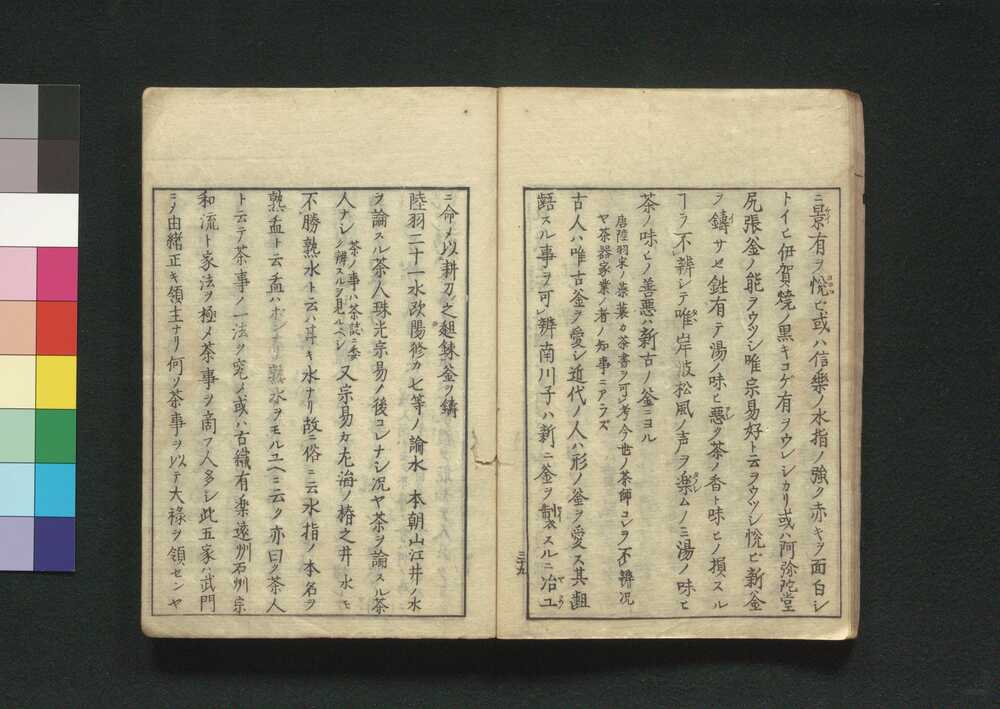 ニ景有ヲ悦ヒ或ハ信樂ノ水指ノ強ク赤キヲ面白シ
トイヒ伊賀焼ノ黒キコゲ有ヲウレシカリ或ハ阿弥陀堂
尻張釜ノ能ヲウツシ唯宗易好ト云ヲウツシ悦ヒ新釜
ヲ鑄サセ鉎有テ湯ノ味ヒ悪ク茶ノ香ト味ヒノ損スル
ヿヲ不辨シテ唯岸波松風ノ声ヲ樂ムノミ湯ノ味ヒ
茶ノ味ヒノ善悪ハ新古ノ釜ニヨル
唐陸羽宋ノ蔡襄カ茶書ヲ可レ考今世ノ茶師コレヲ不辨况
ヤ茶器家業ノ者ノ知事ニアラズ
古人ハ唯古釜ヲ愛シ近代ノ人ハ形ノ釜ヲ愛ス其齟
齬スル事ヲ可レ辨南川子ハ新ニ釜ヲ製スルニ冶工
三十九
ニ命メ以耕刀之鉏錬釜ヲ鑄
陸羽二十一水欧陽修カ七等ノ論水 本朝山江井ノ水
ヲ論スル茶人珠光宗易ノ後コレナシ况ヤ茶ヲ論スル茶
人ナシ
茶ノ事ハ茶誌ニ委
ク辨スルヲ見ルベシ
又宗易カ尤海ノ椿之井ノ水モ
不勝熟水ト云ハ甚キ水ナリ故ニ俗ニ云水指ノ本名ヲ
熟盂ト云盂ハボンナリ熟水ヲモルユヘニ云ク亦曰ク茶人
ト云テ茶事ノ一法ヲ究ノ或ハ古織有楽遠州石州宗
和流ト家法ヲ極メ茶事ヲ商フ人多シ此五家ハ武門
ニノ由緒正キ領主ナリ何ソ茶事ヲ以テ大禄ヲ領センヤ